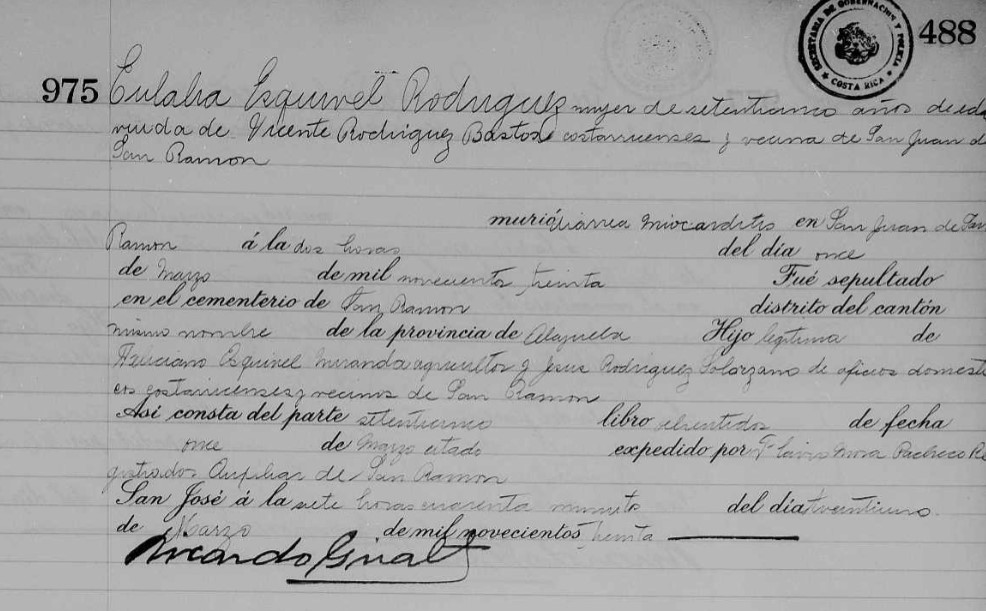 SECRETARIA DE GOBERNACION Y POLICIA
COSTA RICA
488
975 Eulalia Esquivel Rodriguez mujer de setenticinco años de eda
viuda de Vicente Rodriguez Bastos costarricenses y vecina de San Juan d
San Ramon
murió diarrea miocarditis en San Juan de San
Ramon á la dos horas del día once
de Marzo de mil novecientos treinta Fué sepultado
en el cementerio de San Ramon distrito del cantón
mismo nombre de la provincia de Alajuela Hijo legitima de
Feliciano Esquivel Miranda agricultor y Jesus Rodriguez Solorzano de oficios domest
cos costarricenses y vecinos de San Ramon
Así consta del parte setenticinco libro de fecha
once de Marzo citado expedido por Mora Pacheco Re
gistrador Auxiliar de San Ramon
San José á la siete horas cuarenta minutos del día veintiuno.
de Marzo de mil novecientos treinta
Ricardo